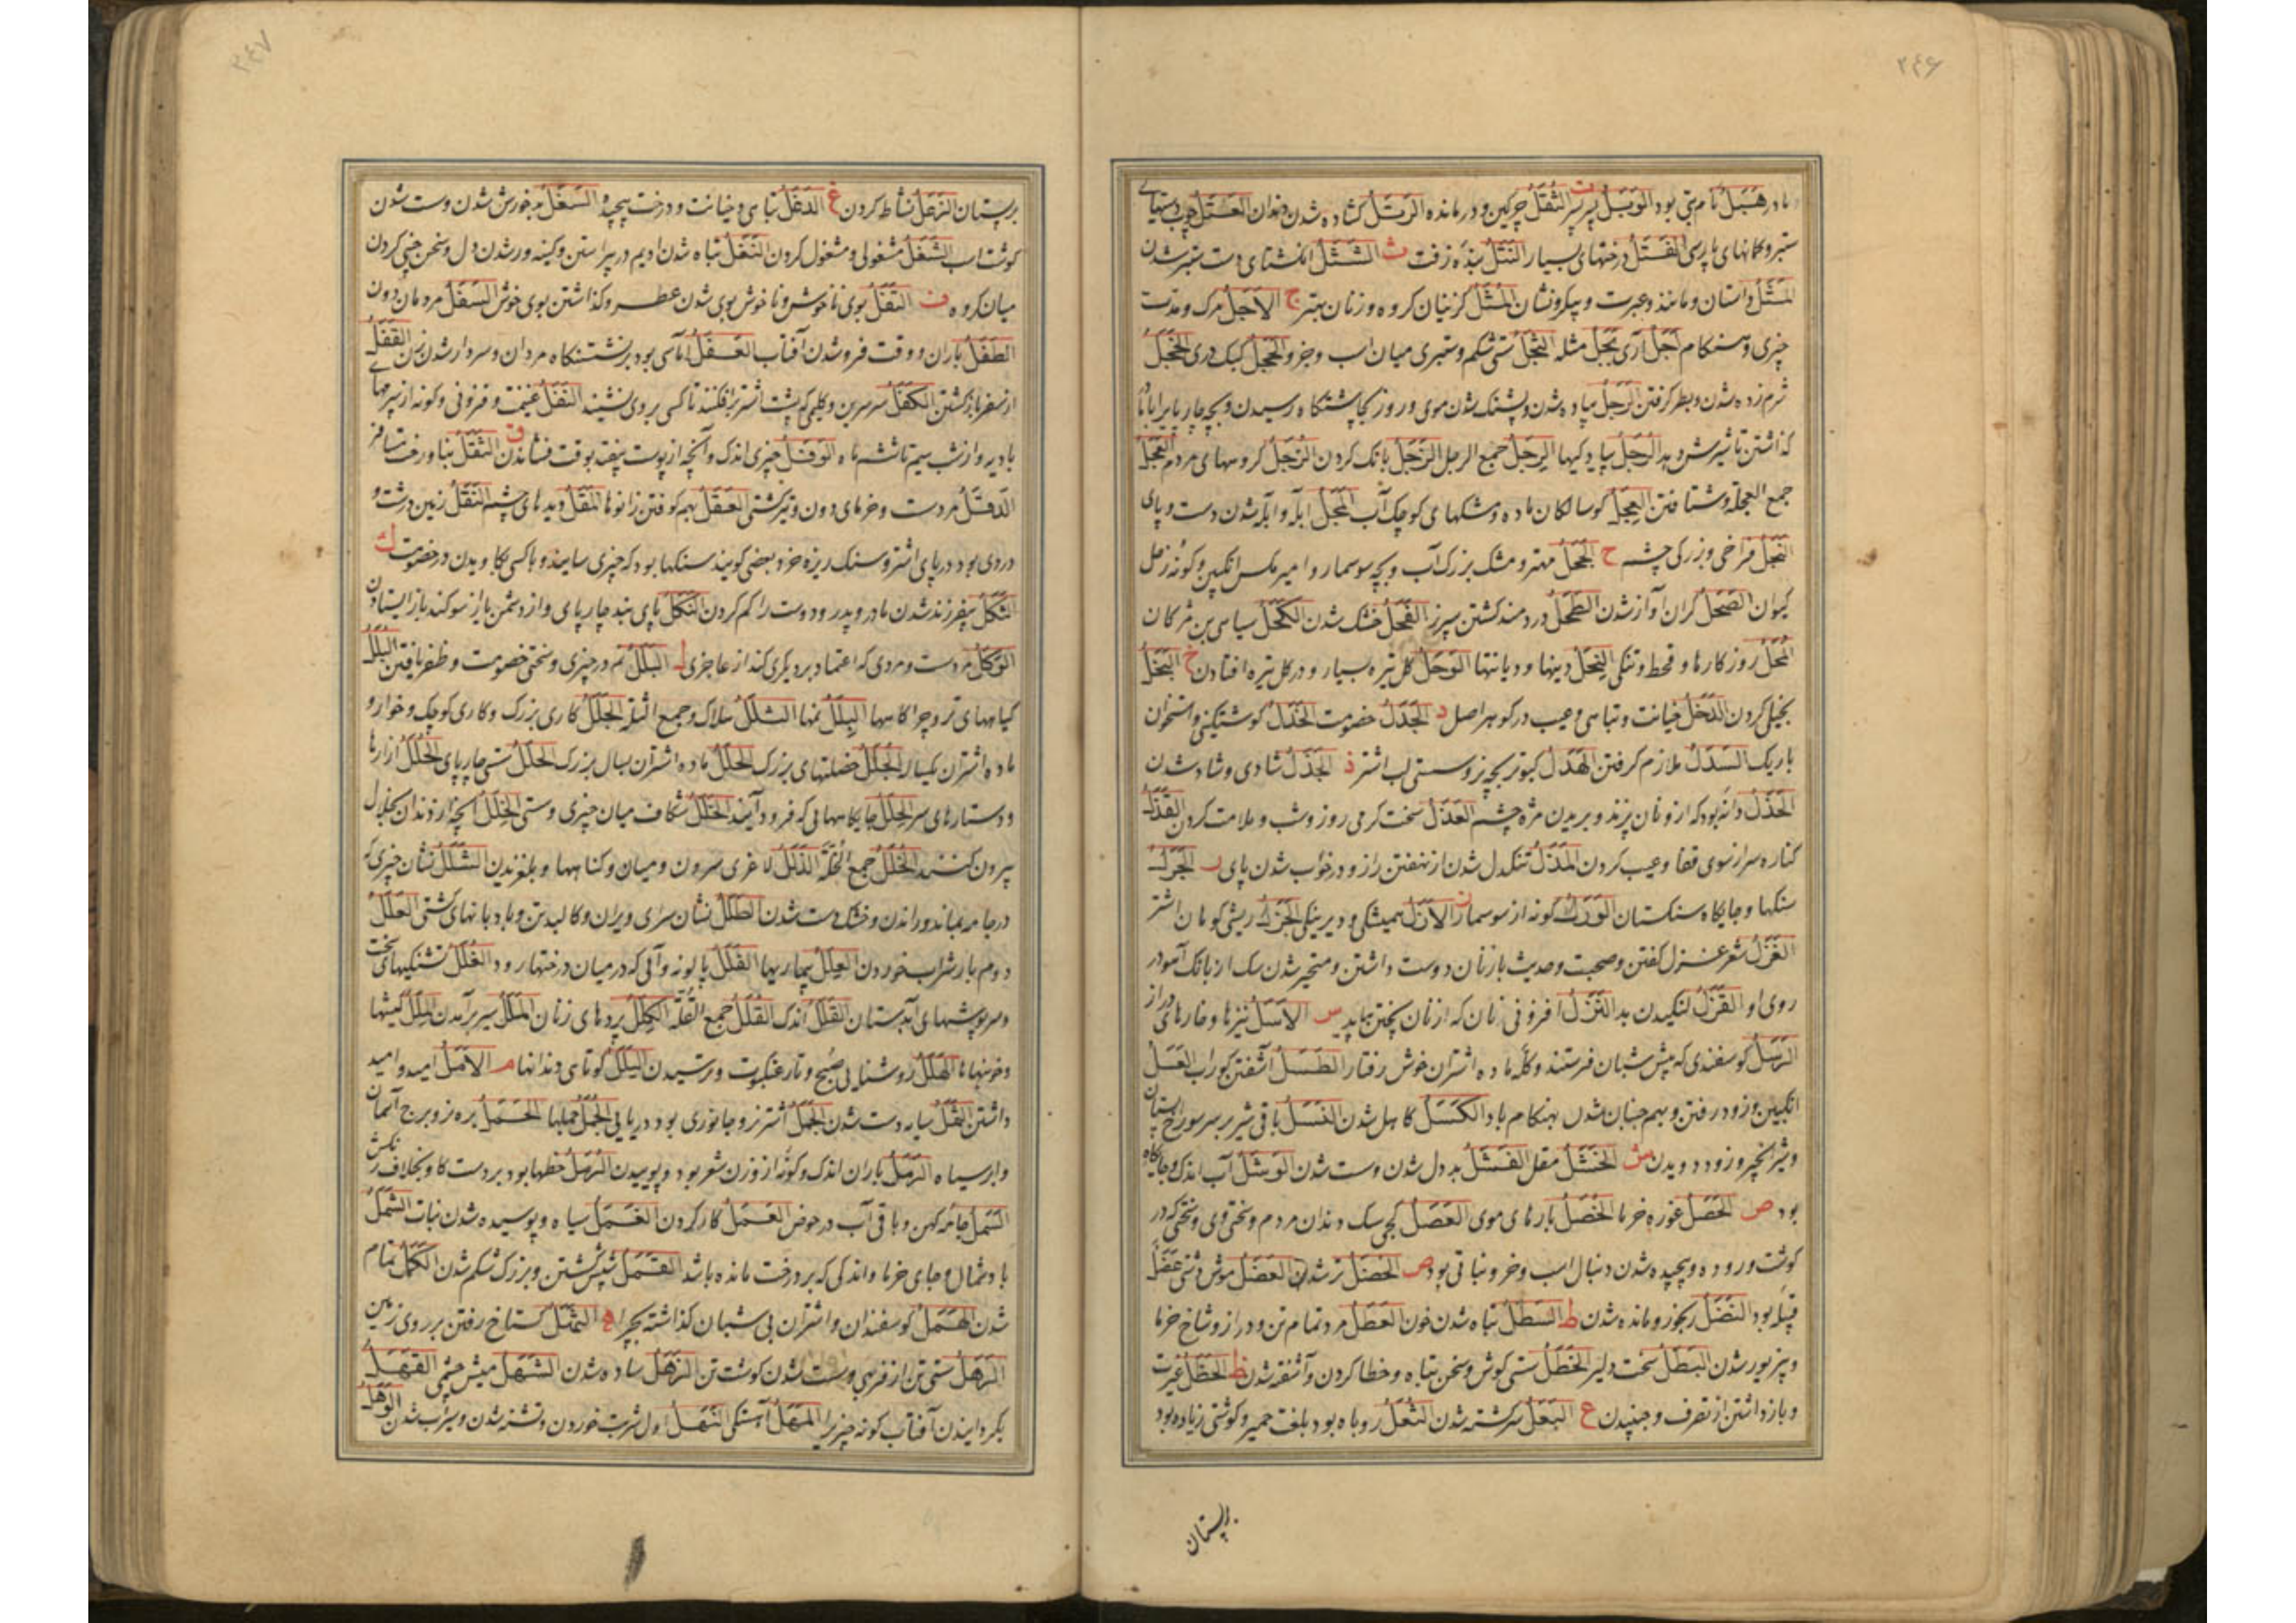 ۲۴۶
مادر هُبَل نام بتی بود الوَبَل پرپر ت الثَفَل چرکین و درمانده الرتَل کشاده شدن دندان العَتَل چوب دستیهای
ستبر و کمانهای پارسی الفَتَل درختهای بسیار النَتَل بیذه زفت ث الشَثَل انکشتهای دست ستبر شدن
المَثَل داستان و مانند و عبرت و پیکر و نشان المُثَل کزینان کروه و زنان بهتر ج الاَجَل مرک و مدت
چیزی و هنکام اَجَل آری بَجَل مثله الثَجَل سستی شکم و ستبری میان اسب و جز و الحَجَل کبک دری الخَجَل
شرم زده شدن و بطر کرفتن الرَجَل پیاده شدن و پشنک شدن موی و روز بچاشتکاه رسیدن و بچه چارپا برابا مادر
کذاشتن تا شیرش بمزد الرِجَل پیاد کیها الرِجَل جمع الرجل الزَجَل بانک کردن الزُجَل کروههای مردم العَجَل
جمع العجلة و شتافتن العِجَل کوسالکان ماده و مشکهای کوچک آب المَجَل ابله و آبله شدن دست و پای
النَجَل فراخی و بزرکی چشم ح الجَحَل مهتر و مشک بزرک آب و بچه سوسمار و امیر مکس انکبین و کونه زحل
کیوان الصَحَل کران آواز شدن الطَحَل دردمند کشتن سپرز القَحَل خشک شدن الکَحَل سیاهی بن مژکان
المَحَل روزکارها و قحط و تنکی النِحَل دینها و دیانتها الوَحَل کل تیره بسیار و در کل تیره افتادن خ البَخَل
بخیلی کردن الدَخَل خیانت و تباهی و عیب در کوهر اصل د الجَدَل خصومت الخَدَل کوشتیکنی و استخوان
باریک السَدَل ملازم کرفتن الهَدَل کبوتر بچه نر و سستی لب اشتر ذ الجَذَل شادی و شاد شدن
الحَذَل دانه بود که از و نان پزند و بریدن مژه چشم العَذَل سخت کرمی روز و شب و ملامت کردن القَذَل
کناره سر از سوی قفا و عیب کردن المَذَل تنکدل شدن از نهفتن راز و در خواب شدن پای ر الجَرَل
سنکها و جایکاه سنکستان الوَرَل کونه از سوسمار ز الاَزَل همیشکی و دیرینکی الجَزَل ریشی کوهان اشتر
الغَزَل شعر غزل کفتن و صحبت و حدیث با زنان دوست داشتن و متحیر شدن سک از بانک آهو در
روی او القَزَل لنکیدن بد النَزَل افزونی نان که از نان پختن بباید س الاَسَل نیزها و خارهای دراز
الرَسَل کوسفندی که پیش شبان فرستند و کله ماده اشتران خوش رفتار الطَسَل آشفتن کوراب العَسَل
انکبین و زود رفتن و بهم جنبان شدن بهنکام باد الکَسَل کاهل شدن النَسَل باقی شیر بر سر سوراخ پستان
و شیر انجیر و زود دویدن ش الخَشَل مقل الفَشَل بد دل شدن و سست شدن الوَشَل آب اندک و جایکاه
بود ص الحَصَل غوره خرما الخُصَل بارهای موی العَصَل کجی سک دندان مردم و سختی و پی و سختی که در
کوشت و روده و پیچیده شدن دنبال اسب و خر و نباتی بود ض الخَضَل تر شدن العَضَل موش دشتی عَضَل
قبیله بود النَضَل رنجور و مانده شدن ط السَطَل تباه شدن خون العَطَل مرد تمام تن و دراز و شاخ خرما
و بی زیور شدن البَطَل سخت دلیر الخَطَل سستی کوش و سخن تباه و خطا کردن و آشفته شدن ظ الحَظَل غیرت
و بازداشتن از تصرف و جنبیدن ع البَعَل سرکشته شدن الثُعَل روباه بود بلغت حمیر و کوشتی زیاده بود
بر پستان
۲۴۷
بر پستان الزَعَل نشاط کردن غ الدَغَل تباهی و خیانت و درخت پیچیده السَغَل بدخورش شدن و سست شدن
کوشت اسب الشَغَل مشغولی و مشغول کردن النَغَل تباه شدن ادیم در پیراستن و کینه ور شدن دل و سخن چینی کردن
میان کروه ف التَفَل بوی ناخوش و ناخوش بوی شدن عطر و کذاشتن بوی خوش السَفَل مردمان دون
الطَفَل باران و وقت فرو شدن آفتاب العَفَل آماسی بود بر نشستنکاه مردان و سردار شدن زن القَفَل
از سفر باز کشتن الکَفَل سرسرین و کلیمی که پشت اشتر برافکنند تا کسی بر وی نشیند النَفَل غنیمت و فزونی و کونه از سپرمهای
بادیه و از شب سیم تا ششم ماه الوَفَل چیزی اندک و آنچه از پوست بیفتد بوقت فشاندن ق الثَقَل بنا و رخت مسافر
الدَقَل مردست و خرمای دون و تیر کشتی العَقَل بهم کوفتن زانوها المُقَل دیدهای چشم النَقَل زمین درشت و
دردی بود در پای اشتر و سنک ریزه خرد و بعضی کویند سنکها بود که چیزی سایند و با کسی بکاویدن در خصومت ک
الثَکَل بیفرزند شدن مادر و پدر و دوست را کم کردن النَکَل پای بند چارپای و از دشمن یا از سوکند باز ایستادن
الوَکَل مردست و مردی که اعتماد بر دیکری کند از عاجزی ل البَلَل نم در چیزی و سختی خصومت و ظفر یافتن البُلَل
کیاههای تر و چراکاهها البِلَل نمها الثَلَل هلاک و جمع الثلة الجَلَل کاری بزرک و کاری کوچک و خوار و
ماده اشتران یکساله الجُلَل خصلتهای بزرک الجِلَل ماده اشتران بسال بزرک الحَلَل سستی چارپای الحُلَل ازارها
و دستارهای سر الحِلَل جایکاههایی که فرود آیند الخَلَل شکاف میان چیزی و سستی الخِلَل آنچه از دندان بخلال
بیرون کنند الخُلَل جمع الخُلَّة الذَلَل لاغری سرون و میان و کناهها و بلغزیدن الشَلَل نشان چیزی که
در جامه بماند و راندن و خشک دست شدن الطَلَل نشان سرای ویران و کالبد تن و بادبانهای کشتی العَلَل
دوم بار شراب خوردن العِلَل بیماریها الغَلَل پالونه و آبی که در میان درختها رود الغُلَل تشنکیهای سخت
و سرپوشهای آبدستان القَلَل اندک القُلَل جمع القُلَّة الکِلَل پردهای زنان المَلَل سیر برآمدن المِلَل کیشها
و خونبها ها الهَلَل روشنایی صبح و تار عنکبوت و ترسیدن الیَلَل کوتاهی دندانها م الاَمَل امید و امید
داشتن الثَمَل سیاه مست شدن الجَمَل اشتر نر و جانوری بود دریایی الجُمَل جملها الحَمَل بره نر و برج آسمان
و ابر سیاه الرَمَل باران اندک و کونه از وزن شعر بود و پوییدن الرُمَل خطها بود بر دست کاو بخلاف رنکش
السَمَل جامه کهن و باقی آب در حوض العَمَل کار کردن الغَمَل سیاه و پوسیده شدن نبات الشَمَل
باد شمال و جای خرما و اندکی که بر درخت مانده باشد القَمَل شپش کشتن و بزرک شکم شدن الکَمَل تمام
شدن الهَمَل کوسفندان و اشتران بی شبان کذاشته بچرا ه الثَهَل کستاخ رفتن بر روی زمین
الرَهَل سستی تن از فربهی و سست شدن کوشت تن الزَهَل ساده شدن الشَهَل میش چشمی القَهَل
بکردانیدن آفتاب کونه چیز را المَهَل آهستکی النَهَل اول شربت خوردن و تشنه شدن و سیراب شدن الوَهَل